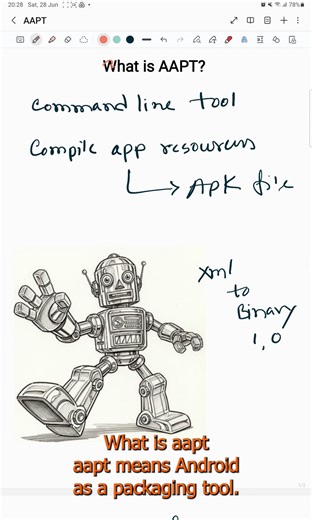 20:28 Sat, 28 Jun
78%
AAPT
What is AAPT?
Command line tool
Compile app resources
APK file
Xml
to
Binary
1, 0
What is aapt
aapt means Android
as a packaging tool.